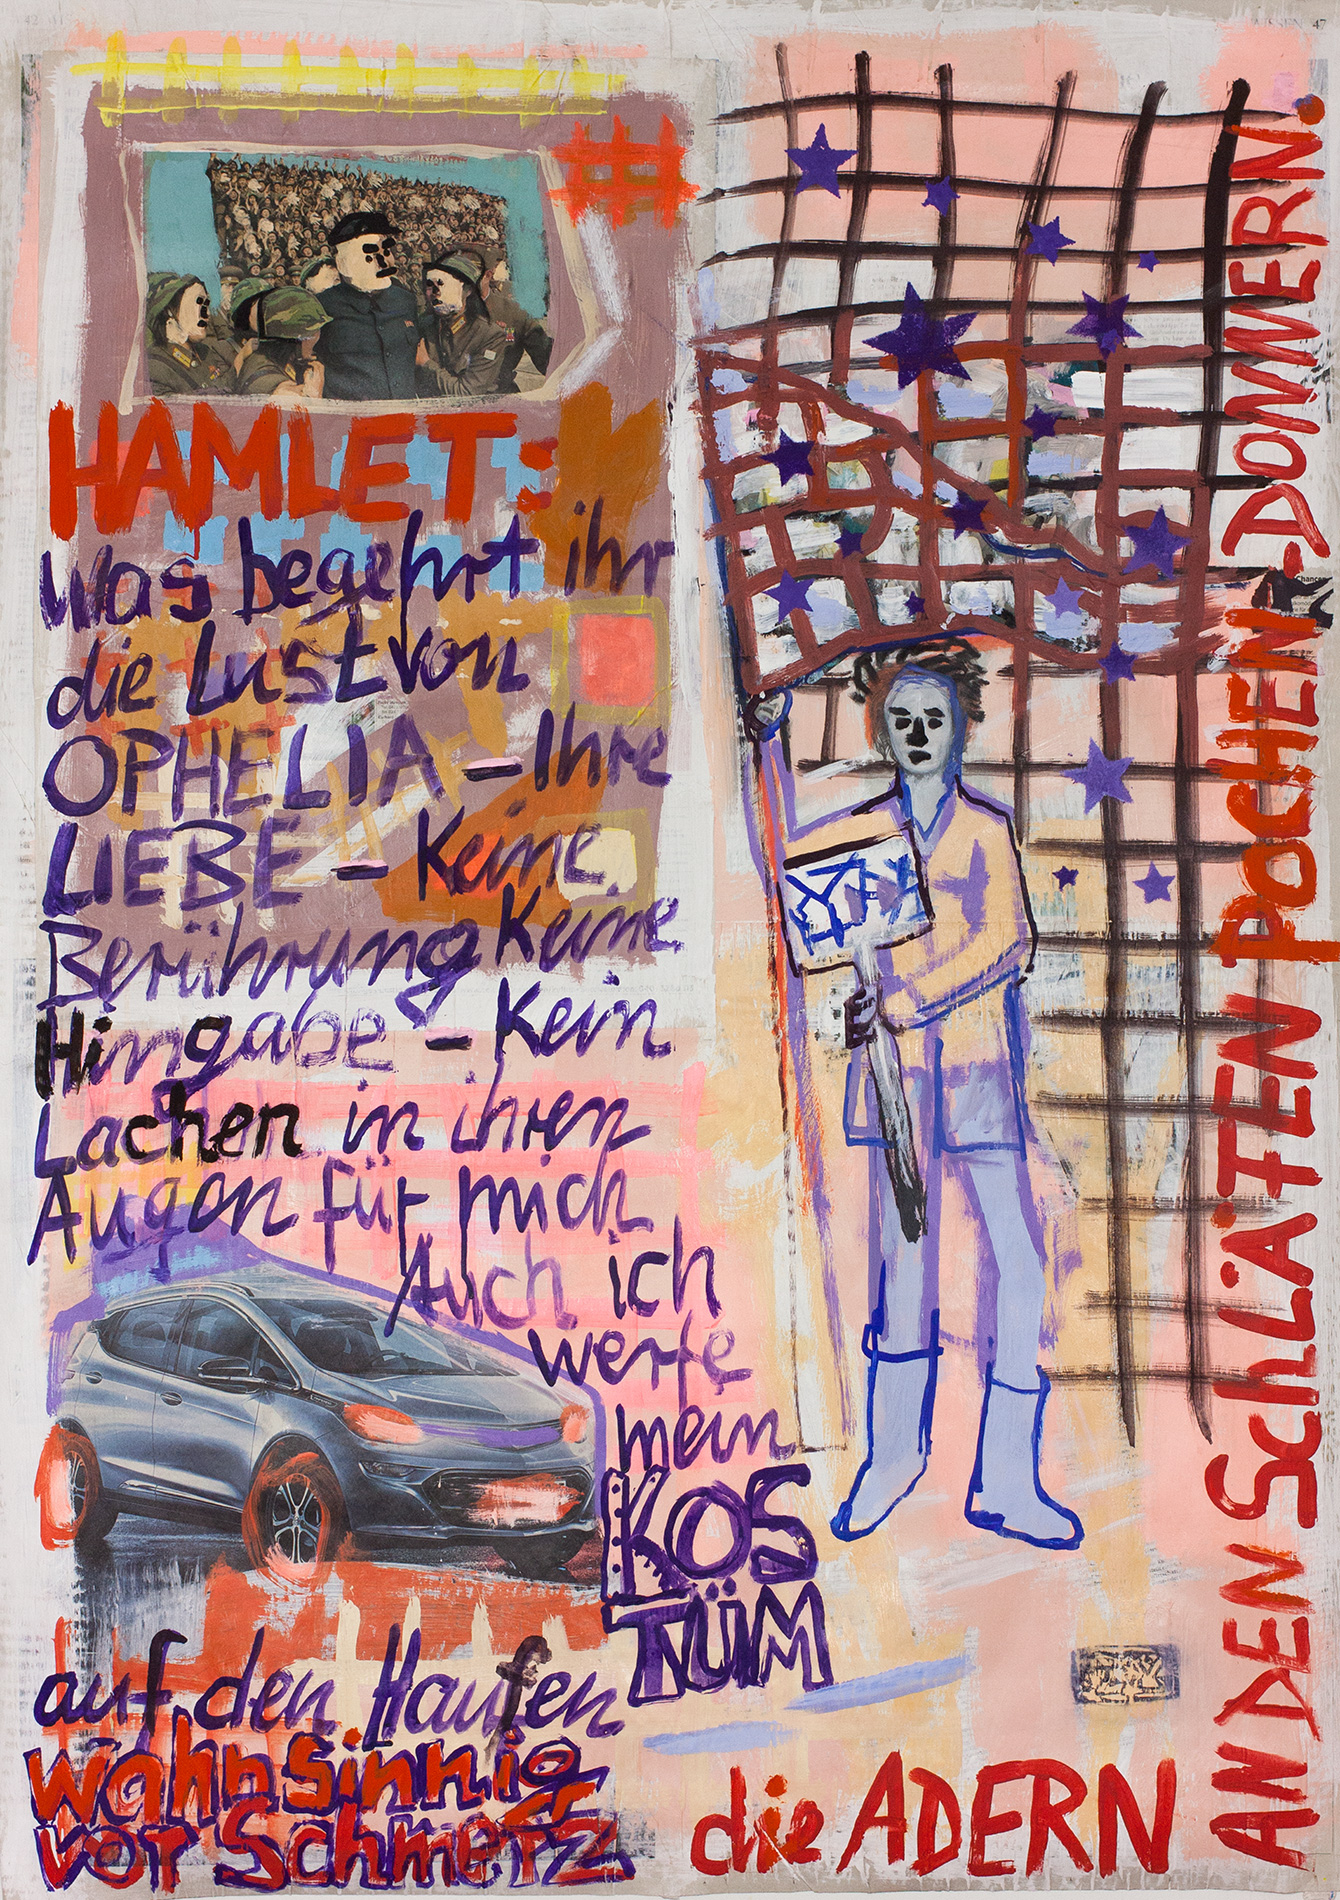 HAMLET:
Was begehrt ihr
die Lust von
OPHELIA – Ihre
LIEBE – Keine
Berührung Keine
Hingabe – Kein
Lachen in ihren
Augen für mich
Auch ich
werfe
mein
KOS
TÜM
auf den Haufen
wahnsinnig
vor Schmerz
die ADERN
AN DEN SCHLÄFEN POCHEN - DONNERN.
47
Chancen